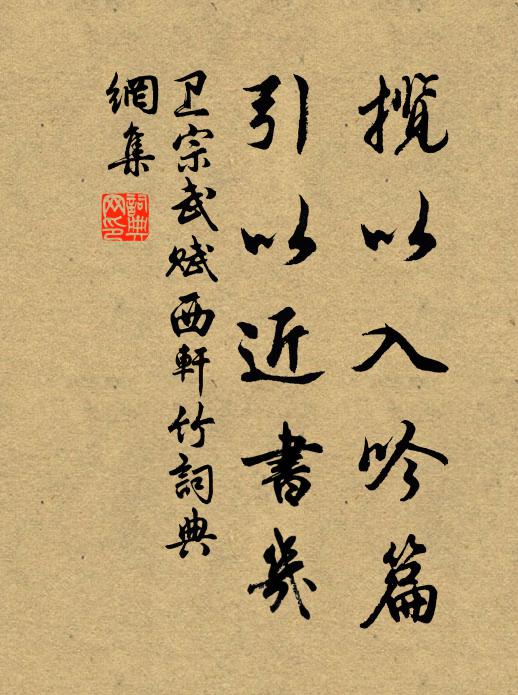 揽以入吟篇
引以近書幾
卫宗武赋西軒竹詞典
網集
詞典
网印